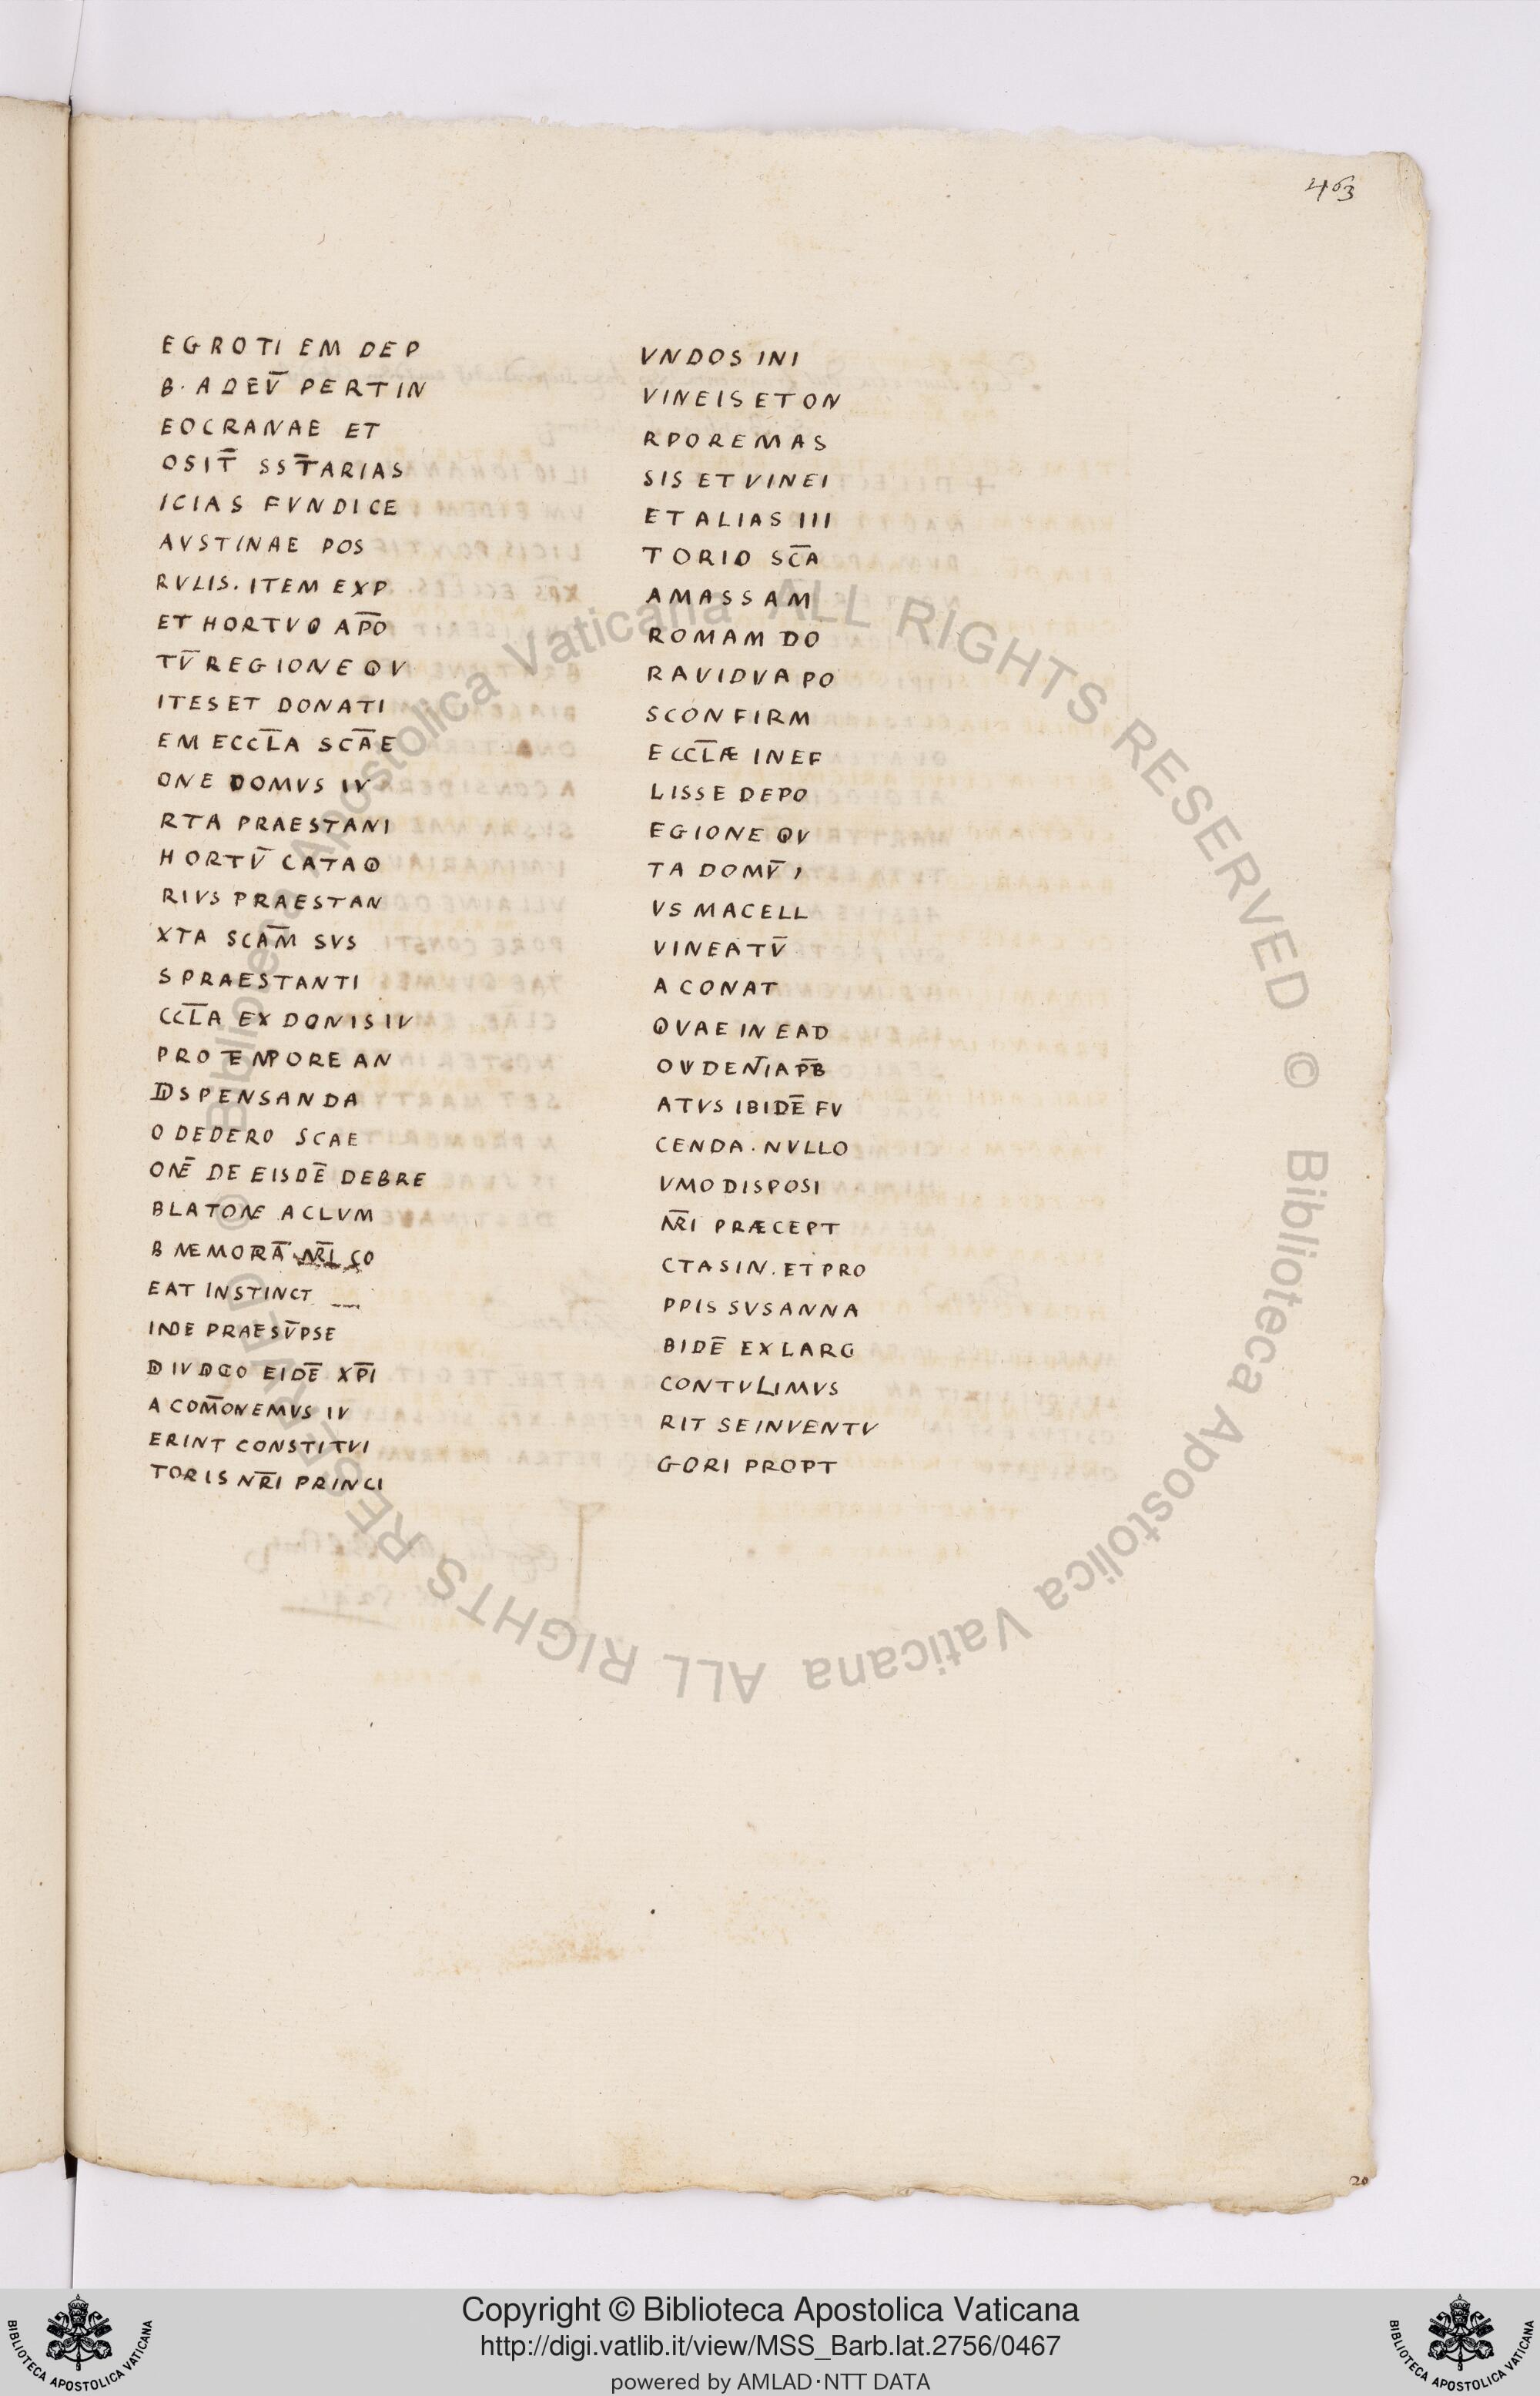 463
EGROTI EM DEP
B. ADEV̄ PERTIN
EOCRANAE ET
OSIT̄ SST̄ARIAS
ICIAS FVNDICE
AVSTINAE POS
RVLIS. ITEM EXP
ET HORTVQ AP̄O
TV̄ REGIONE QV
ITESET DONATI
EM ECCL̄A SC̄AE
ONE DOMVS IV
RTA PRAESTANI
HORTV̄ CATAQ
RIVS PRAESTAN
XTA SCĀM SVS
SPRAESTANTI
CCL̄A EX DONIS IV
PRO TEMPORE AN
DISPENSANDA
O DEDERO SCAE
ONĒ DE EISDĒ DEBRE
BLATONE ACLVM
B NEMORĀ NR̄I CO
EAT INSTINCT
INDE PRAESV̄PSE
D IVDCO EIDĒ XP̄I
A COM̄ONEMVS IV
ERINT CONSTITVI
TORIS NR̄I PRINCI
VNDOS INI
VINEIS ET ON
RPOREMAS
SIS ET VINEI
ET ALIAS III
TORIO SC̄A
AMASSAM
ROMAM DO
RAVIDVA PO
SCONFIRM
ECCL̄Æ INEF
LISSE DEPO
EGIONE QV
TA DOMV̄ ,
VS MACELL
VINEATV̄
A CONAT
QVAE IN EAD
OVDENT̄IA PB̄
ATVS IBIDĒ FV
CENDA. NVLLO
VMO DISPOSI
NR̄I PRÆCEPT
CTASIN. ET PRO
PPIS SVSANNA
BIDĒ EX LARG
CONTVLIMVS
RIT SE INVENTV
GORI PROPT
20
© Biblioteca Apostolica Vaticana ALL RIGHTS RESERVED © Biblioteca Apostolica Vaticana ALL RIGHTS RESERVED
Copyright © Biblioteca Apostolica Vaticana
http://digi.vatlib.it/view/MSS_Barb.lat.2756/0467
powered by AMLAD·NTT DATA
BIBLIOTECA APOSTOLICA VATICANA
BIBLIOTECA APOSTOLICA VATICANA